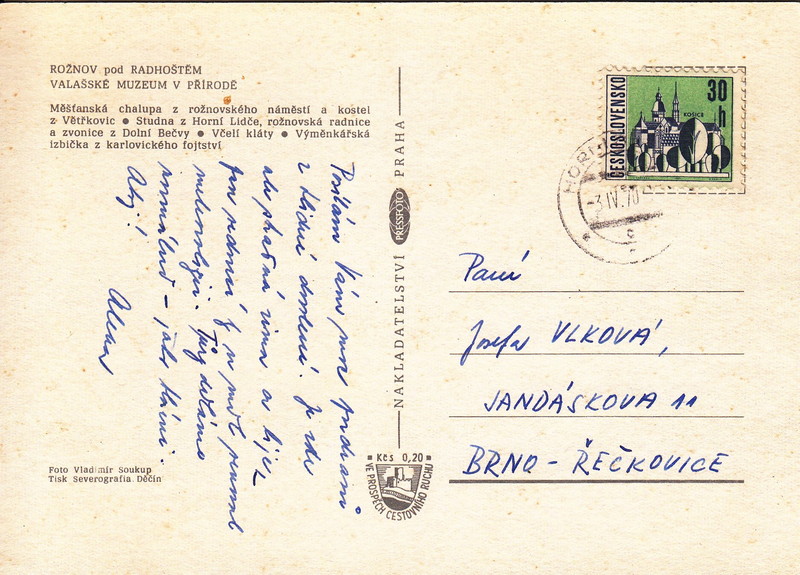 ROŽNOV pod RADHOŠTĚM
VALAŠSKÉ MUZEUM V PŘÍRODĚ
Měšťanská chalupa z rožnovského náměstí a kostel
z Větřkovic ● Studna z Horní Lidče, rožnovská radnice
a zvonice z Dolní Bečvy ● Včelí kláty ● Výměnkářská
izbička z karlovického fojtství
Posílám Vám
z klidné dovolené. Je zde
ale zima a
normálně – jako
Ahoj!
Alena
Foto Vladimír Soukup
Tisk Severografia Děčín
NAKLADATELSTVÍ PRESSFOTO PRAHA
Kčs 0,20
VE PROSPĚCH CESTOVNÍHO RUCHU
ČESKOSLOVENSKO
30 h
KOŠICE
-3.IV.70
Paní
Josefa VLKOVÁ,
JANDÁSKOVA 11
BRNO – ŘEČKOVICE